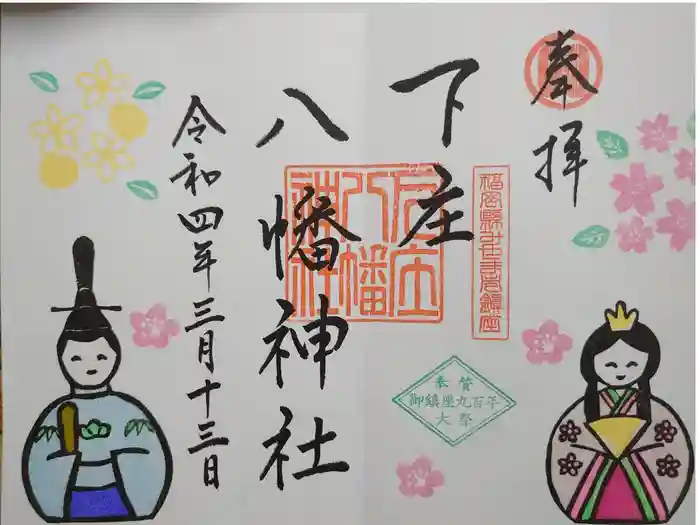 奉拝
下座
八幡神社
令和四年三月十三日
下座
八幡
神社
奉賛
御鎮座九百年
大祭